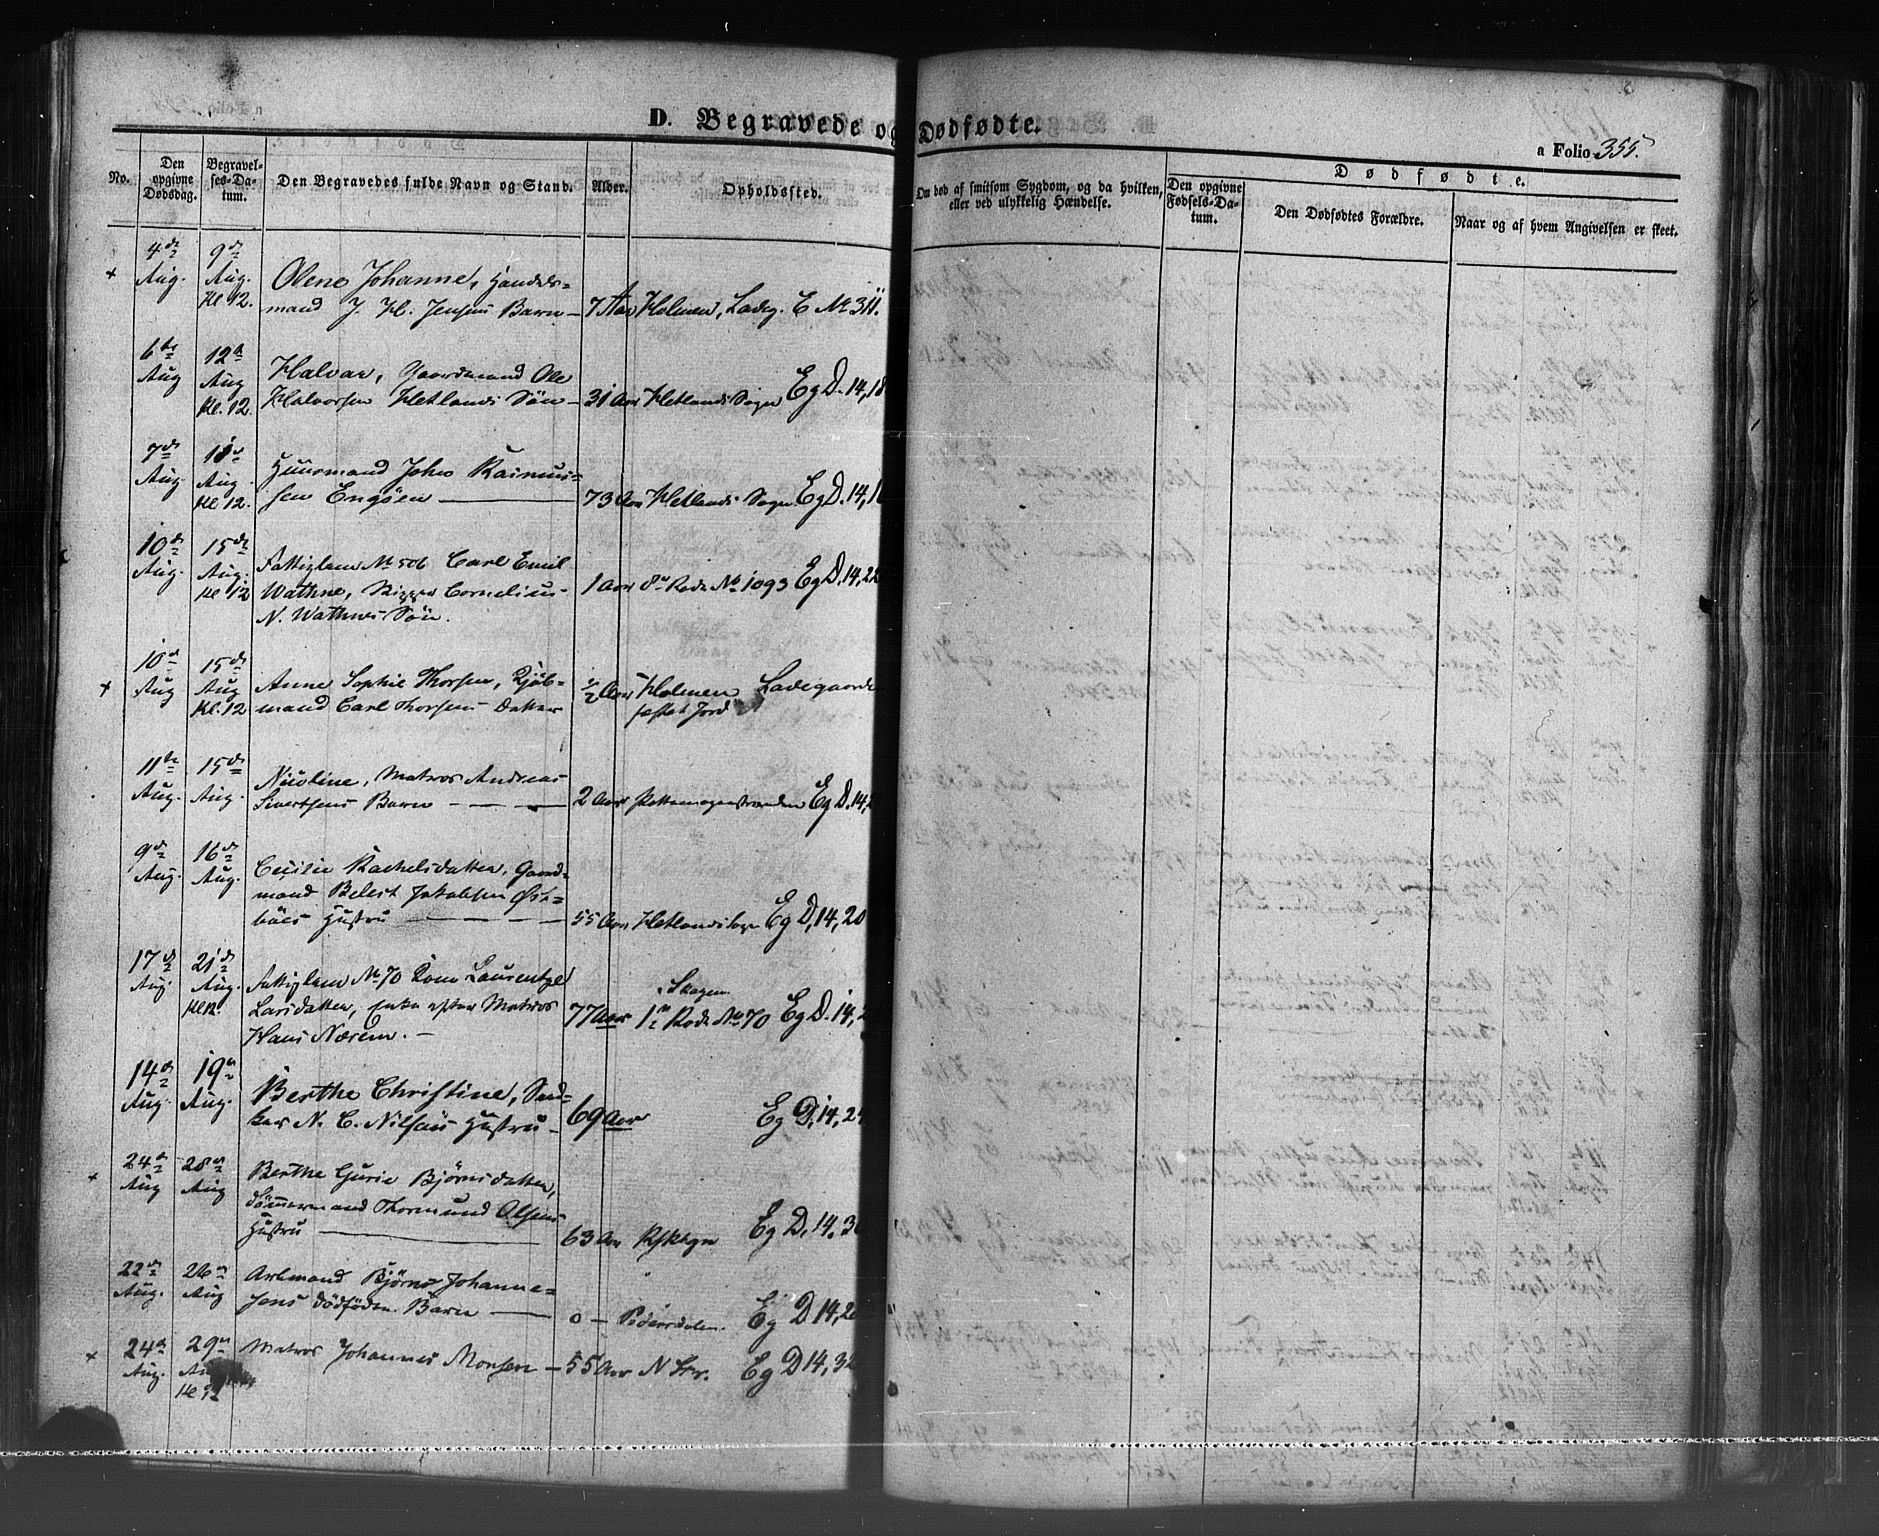 D. Begravede og Dødfødte.
a Folio 355.
No.
Den opgivne Dødsdag.
Begravelses-Datum.
Den Begravedes fulde Navn og Stand.
Alder.
Opholdssted.
Om død af smitsom Sygdom, og da hvilken, eller ved ulykkelig Hændelse.
Dødfødte.
Den opgivne Fødsels-Datum.
Den Dødfødtes Forældre.
Naar og af hvem Angivelsen er skeet.
4de 9de
+ Aug. Aug. Olene Johanne, Handels=
Kl 12. mand J. H. Jensens Barn – 7 Aar Holmen, Ladeg. E No 311.
6te 12te
Aug Aug Halvar, Gaardmand Ole
Kl. 12. Halvorsen Hetlands Søn – 31 Aar Hetlands Sogn Eg D. 14, 18
7de
Aug. Aug. Huusmand John Rasmus=
Kl 12. sen Engøen — 73 Aar Hetlands Sogn Eg D. 14, 1
10de 15de
Aug. Aug. Fattiglem No 506 Carl Emil
Kl 12 Wathne, Cornelius 1 Aar 8de Rode No 1093 Eg D, 14, 22
N. Wathnes Søn.
10de 15de
+ Aug Aug Anne Sophie Thorsen, Kjøb=
Kl. 12 mand Carl Thorsens Datter ½ Aar Holmen Ladegaards
fæstet Jord
11te 15de
Aug. Aug. Nicoline, Matros Andreas
Sivertsens Barn — 2 Aar Eg D. 14, 2
9de 16de
Aug. Aug. Cecilie Rachelsdatter, Gaard=
mand Belest Jakobsen Øste=
bøes Hustru — 55 Aar Hetlands Sogn Eg D, 14, 20
17de 21de
Aug. Aug. Fattiglem No 70 Laurentze Skagen
Kl 12. Larsdatter, Enke efter Matros 77 Aar 1ste Rode No 70 Eg D. 14, 2
Hans Næsem. –
14de 19de
Aug. Aug. Berthe Christine, Sned=
ker N. C. Nilsens Hustru – 69 Aar Eg D, 14, 24
24de 28de
+ Aug Aug Berthe Gurie Bjørnsdatter,
Tømmermand Thormund Olsens
Hustru — 63 Aar Eg D, 14, 30
22de 26de
Aug. Aug Arbmand Bjørn Johanne=
sens dødfødte Barn — 0 – Pedersdalen. Eg D 14, 20
24de 29de
+ Aug. Matros Johannes Monsen – 55 Aar N Str. Eg D 14, 32